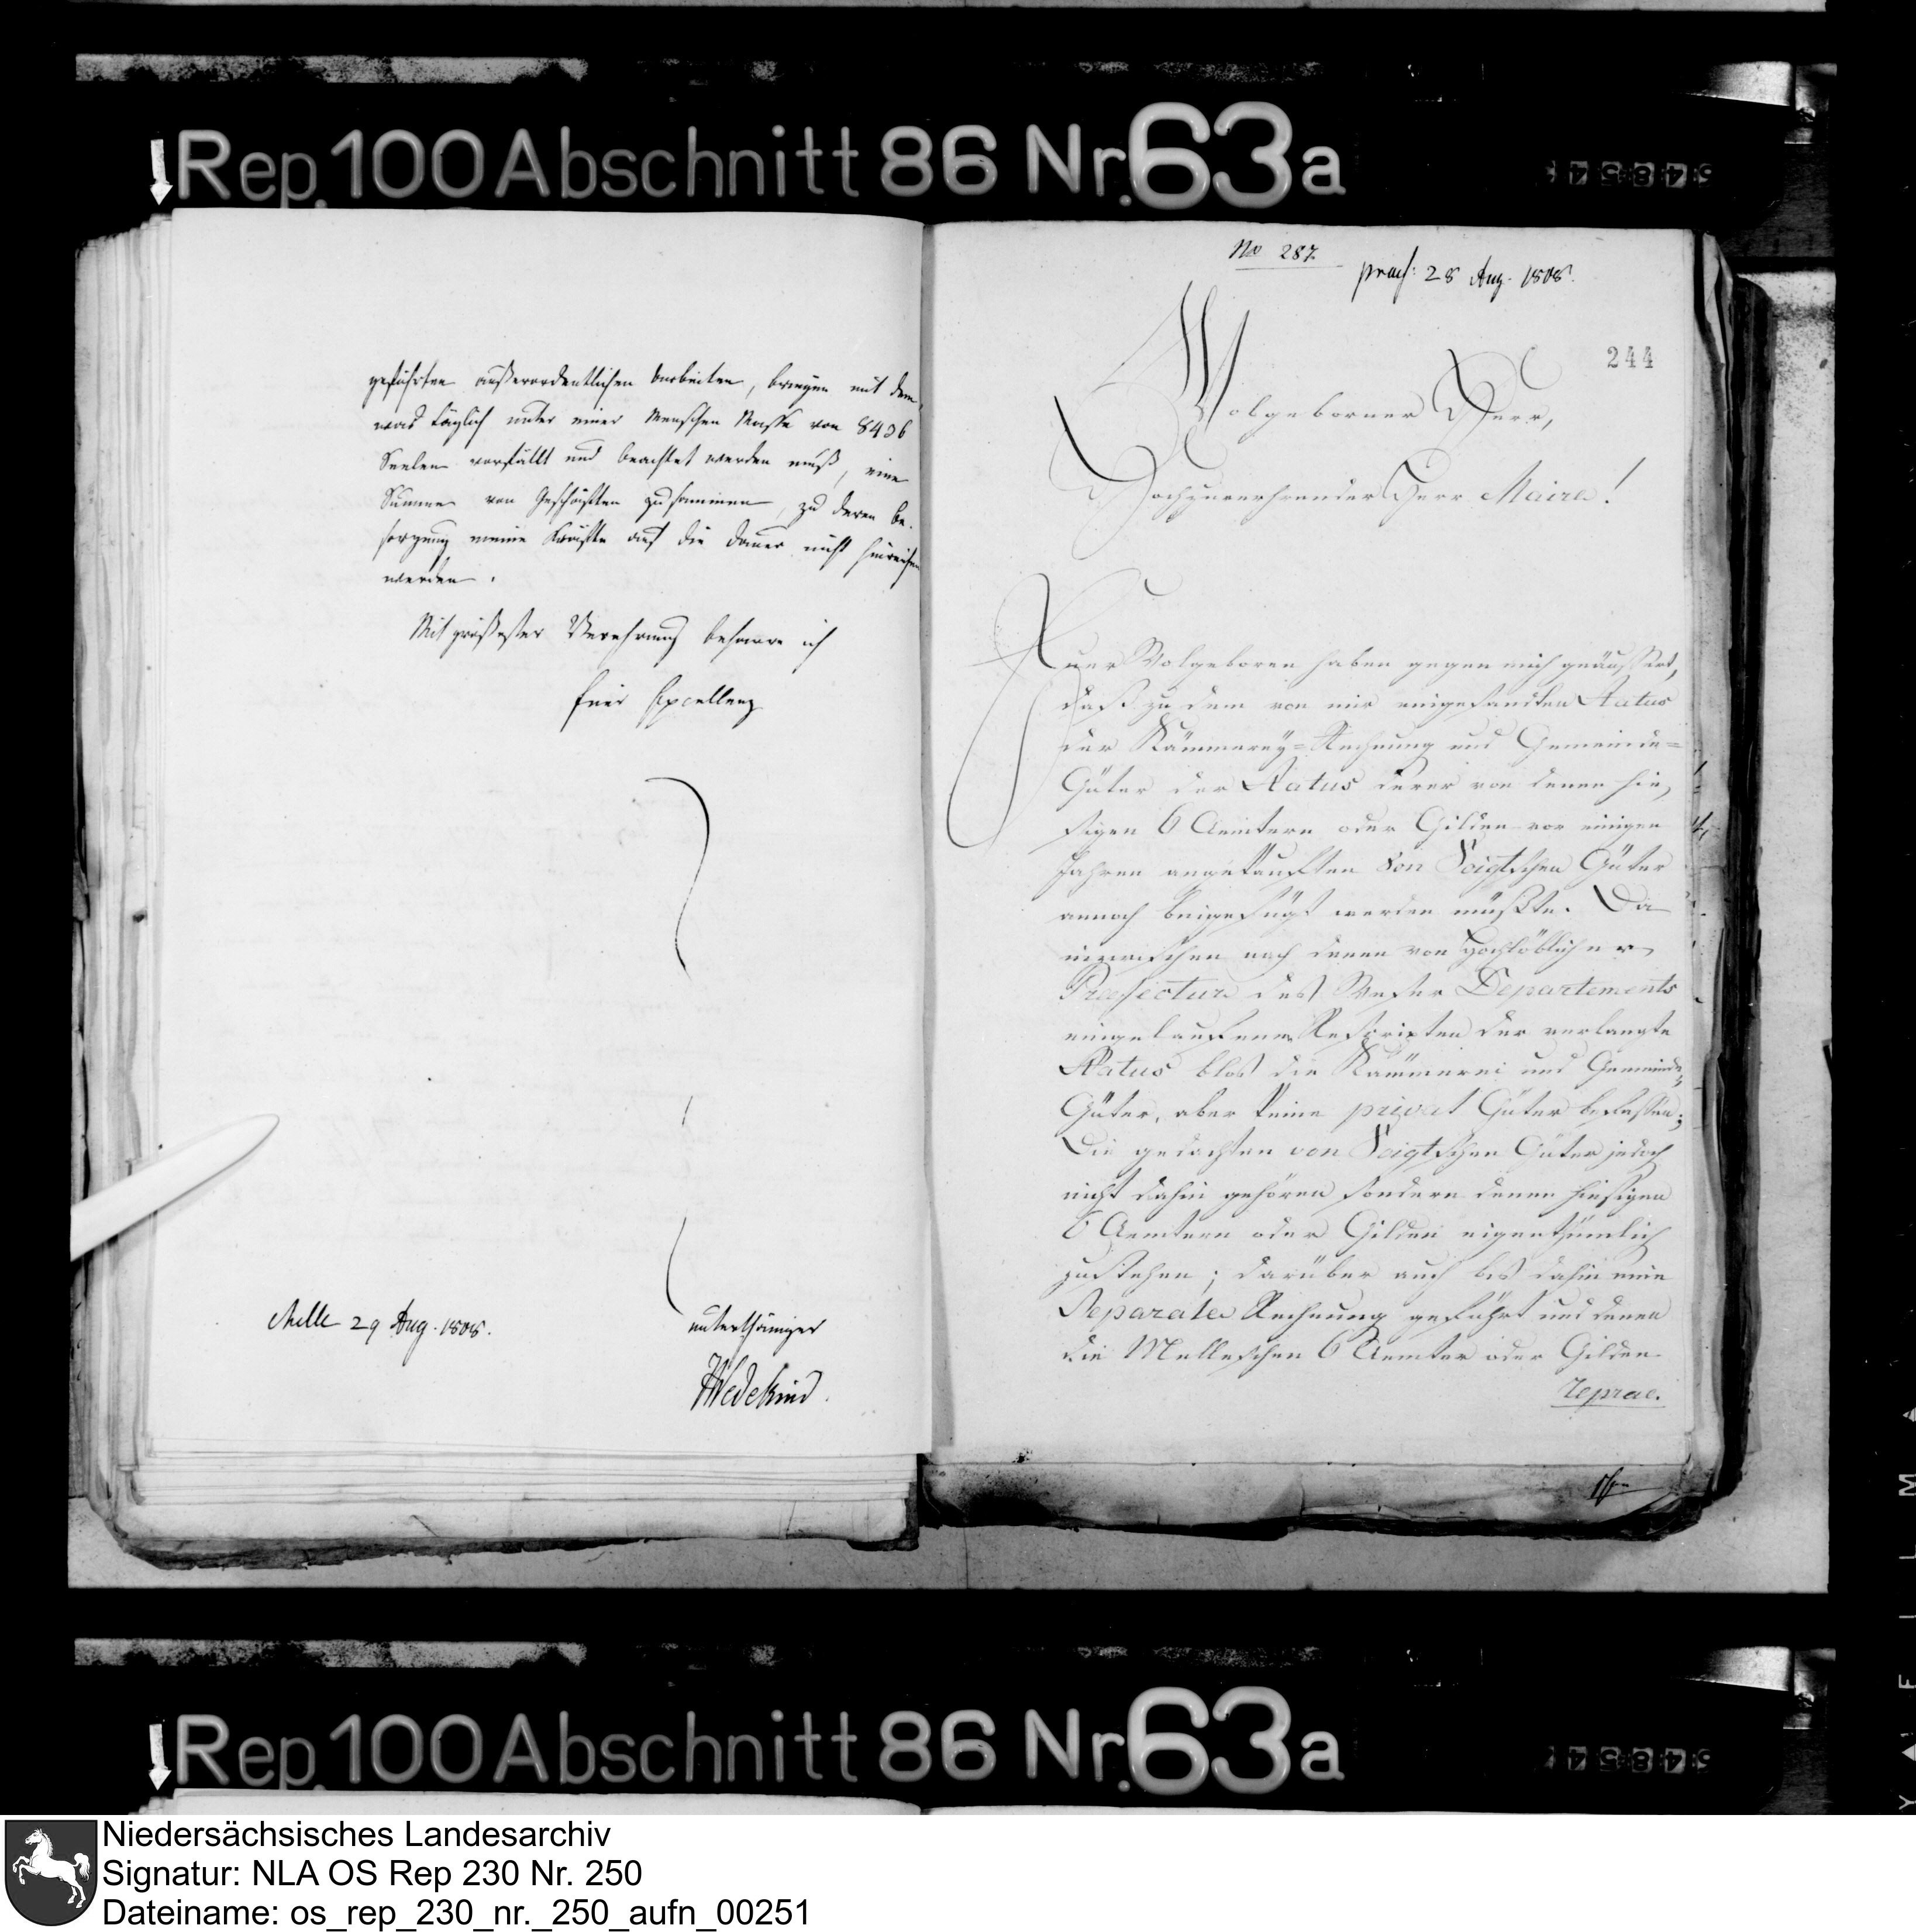 Rep. 100 Abschnitt 86 Nr. 63a
geführten außerordentlichen Arbeiten, bringen mit dem,
was täglich unter einer Menschen Masse von 8436
Seelen vorfällt und beachtet werden muß, eine
Summe von Geschäften zusammen, zu deren be-
sorgung meine Kräfte auf die Dauer nicht hinreichen
werden.
Mit größester Verehrung beharre ich
Euer Excellenz
Melle 29 Aug. 1808.
unterthäniger
Wedekind.
No 287.
praes: 28 Aug. 1808.
244
Wolgeborner Herr,
Hochzuverehrender Herr Maire!
Euer Wolgeboren haben gegen mich geäussert,
daß zu dem von mir eingesandten Status
der Kämmerey=Rechnung und Gemeinde=
Güter der Status derer von denen hie,
sigen 6 Aemtern oder Gilden vor einigen
Jahren angekauften von Voigtschen Güter
annoch beigefügt werden müßte. Da
inzwischen nach denen von Hochlöblicher
Praefectur des Weser Departements
eingelaufenen Rescripten der verlangte
Status blos die Kämmerei und Gemeinde,
Güter, aber keine privat Güter befassen;
Die gedachten von Voigtschen Güter jedoch
nicht dahin gehören sondern denen hiesigen
6 Aemtern oder Gilden eigenthümlich
zustehen; darüber auch bis dahin eine
Separate Rechnung geführt und denen
die Melleschen 6 Aemter oder Gilden
reprae.
Rep. 100 Abschnitt 86 Nr. 63a
Niedersächsisches Landesarchiv
Signatur: NLA OS Rep 230 Nr. 250
Dateiname: os_rep_230_nr._250_aufn_00251